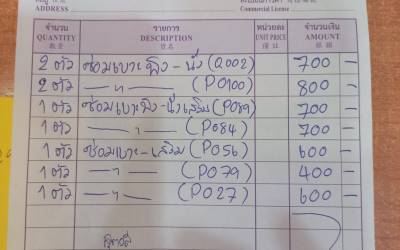 ADDRESS
Commercial License
จำนวน รายการ หน่วยละ จำนวนเงิน
QUANTITY DESCRIPTION UNIT PRICE AMOUNT
2 ตัว ซ่อมเบาะพิง - นั่ง (Q002) 700 -
2 ตัว — " — (P0100) 800 -
1 ตัว ซ่อมเบาะพิง - นั่งเสริม (P089) 700 -
1 ตัว — " — (P084) 700 -
1 ตัว ซ่อมเบาะ - เสริม (P056) 600 -
1 ตัว — " — (P079) 400 -
1 ตัว — " — (P027) 600 -